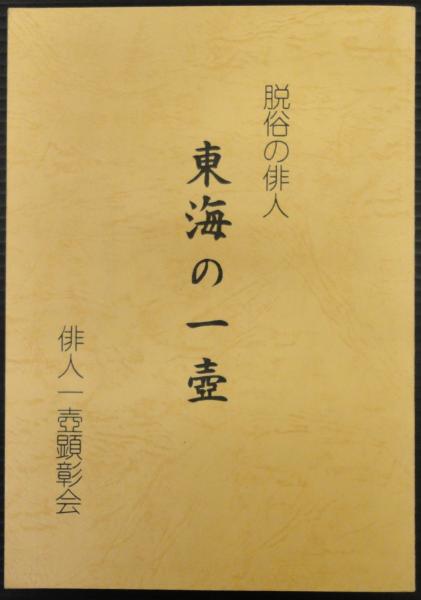 脱俗の俳人
東海の一壺
俳人一壺顕彰会